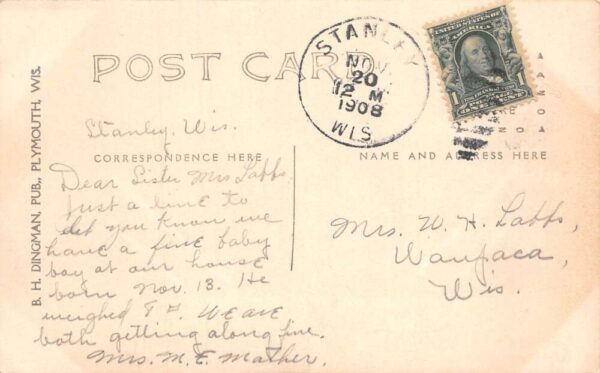 POST CARD
STANLEY
NOV
20
12 M
1908
WIS.
UNITED STATES OF
AMERICA
1
B. H. DINGMAN, PUB., PLYMOUTH, WIS.
CORRESPONDENCE HERE
NAME AND ADDRESS HERE
Stanley, Wis.
Dear Sister Mrs Labbs,
just a line to
let you know we
have a fine baby
boy at our house
born Nov. 13. He
weighed 9 #. We are
both getting along fine.
Mrs. M. E. Mather.
Mrs. W. H. Labbs,
Waupaca,
Wis.